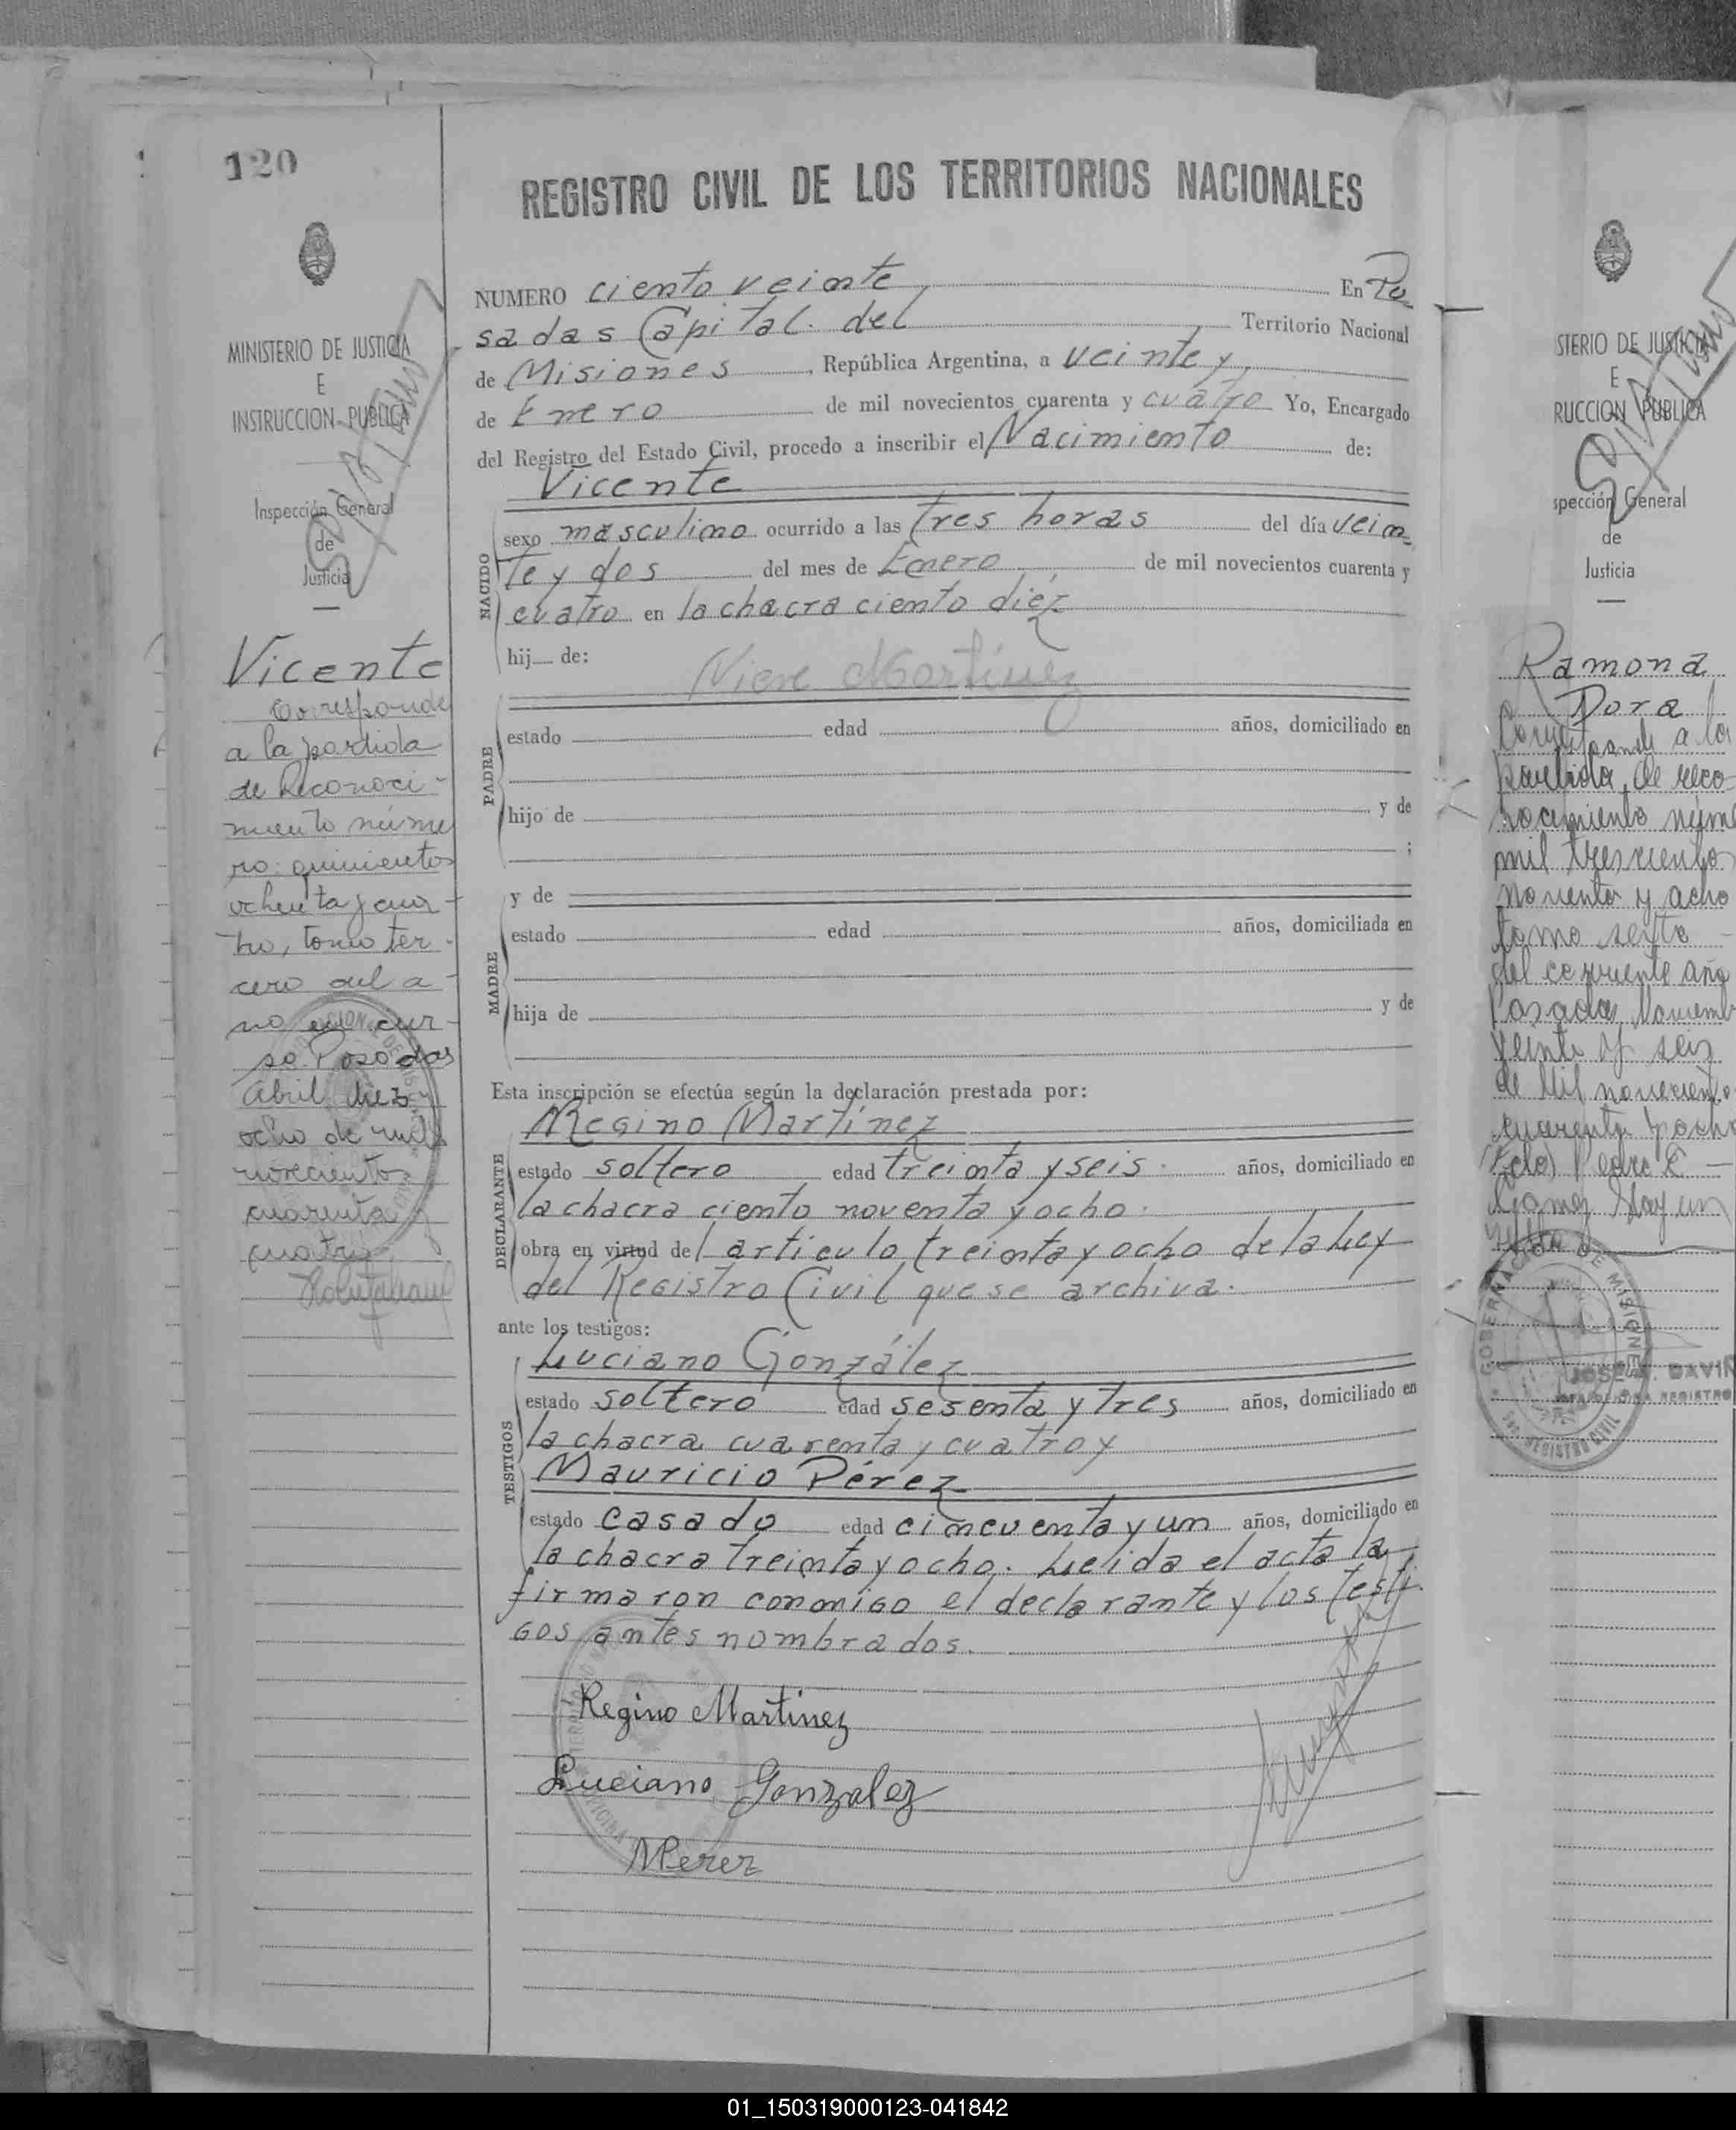 120
REGISTRO CIVIL DE LOS TERRITORIOS NACIONALES
NUMERO ciento veinte En Po
sadas Capital del Territorio Nacional
de Misiones, República Argentina, a veinte y
de Enero de mil novecientos cuarenta y cuatro Yo, Encargado
del Registro del Estado Civil, procedo a inscribir el Nacimiento de:
Vicente
NACIDO
sexo masculino ocurrido a las tres horas del día vein
te y dos del mes de Enero de mil novecientos cuarenta y
cuatro en la chacra ciento diez
hij de:
Martínez
PADRE
estado edad años, domiciliado en
hijo de y de
;
y de
MADRE
estado edad años, domiciliada en
hija de y de
Esta inscripción se efectúa según la declaración prestada por:
Regino Martínez
DECLARANTE
estado soltero edad treinta y seis años, domiciliado en
la chacra ciento noventa y ocho.
obra en virtud del articulo treinta y ocho de la Ley
del Registro Civil que se archiva.
ante los testigos:
Luciano González
TESTIGOS
estado soltero edad sesenta y tres años, domiciliado en
la chacra cuarenta y cuatro y
Mauricio Pérez
estado casado edad cincuenta y un años, domiciliado en
la chacra treinta y ocho. Leida el acta la
firmaron conmigo el declarante y los testi-
gos antes nombrados.
Regino Martinez
Luciano Gonzalez
MPerez
MINISTERIO DE JUSTICIA
E
INSTRUCCION PUBLICA
Inspección General
de
Justicia
Vicente
Corresponde
a la partida
de Reconoci-
miento núme
ro: quinientos
ochenta y cua-
tro, tomo ter-
cero del a-
ño en cur-
so. Posadas
Abril diez y
ocho de mil
novecientos
cuarenta y
cuatro
STERIO DE JUSTICIA
E
RUCCION PUBLICA
spección General
de
Justicia
Ramona
Dora
Corresponde a la
partida de reco-
nocimiento núme
mil trescientos
noventa y ocho
tomo sexto
del corriente año
Posadas, Noviemb
veinte y seis
de Mil noveciento
cuarenta y ocho
GOBERNACION DE MISIONES
REGISTRO CIVIL
JOSE DAVI
REGISTRO
01_150319000123-041842